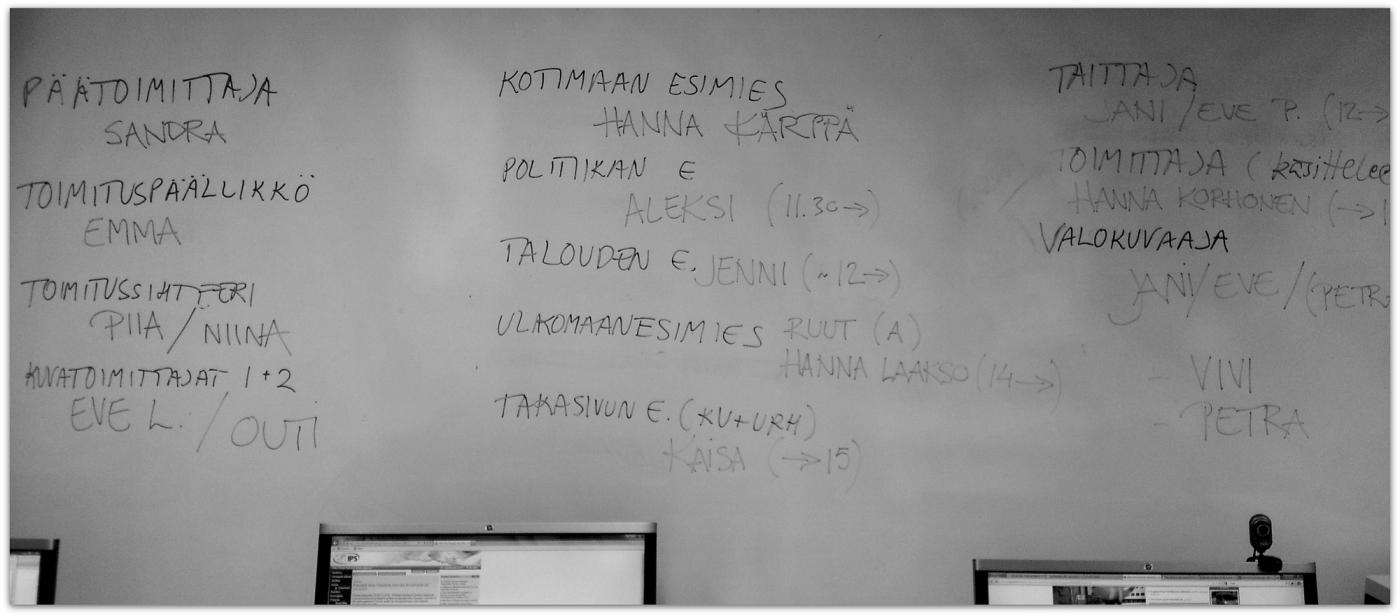 PÄÄTOIMITTAJA
SANDRA
TOIMITUSPÄÄLLIKKÖ
EMMA
TOIMITUSSIHTEERI
PIIA / NIINA
KUVATOIMITTAJAT 1+2
EVE L. / OUTI
KOTIMAAN ESIMIES
HANNA KÄRPPÄ
POLITIIKAN E
ALEKSI (11.30→)
TALOUDEN E. JENNI (~12→)
ULKOMAANESIMIES RUUT (A)
HANNA LAAKSO (14→)
TAKASIVUN E. (KU+URH)
KAISA (→15)
TAITTAJA
JANI / EVE P. (12→
TOIMITTAJA (käsittelee
HANNA KORHONEN (→1
VALOKUVAAJA
JANI / EVE / (PETRA
- VIVI
- PETRA
IPS